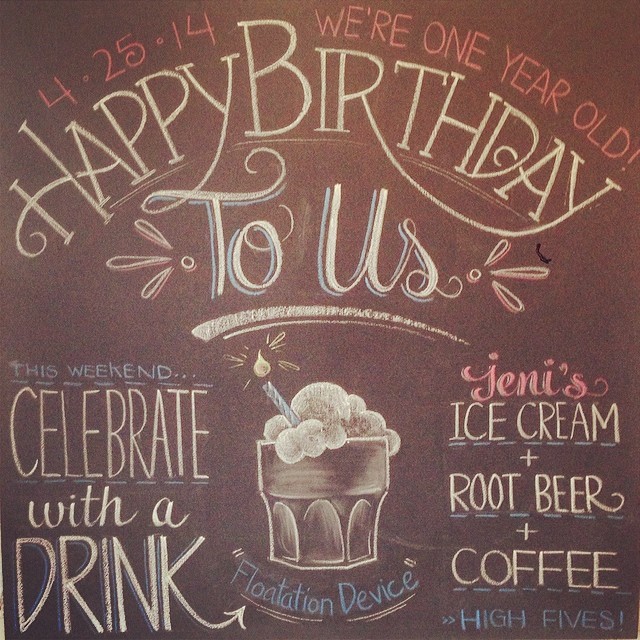 4·25·14 WE'RE ONE YEAR OLD!
HAPPY BIRTHDAY
To Us
THIS WEEKEND...
CELEBRATE
with a
DRINK
Floatation Device
jeni's
ICE CREAM
+
ROOT BEER
+
COFFEE
»HIGH FIVES!